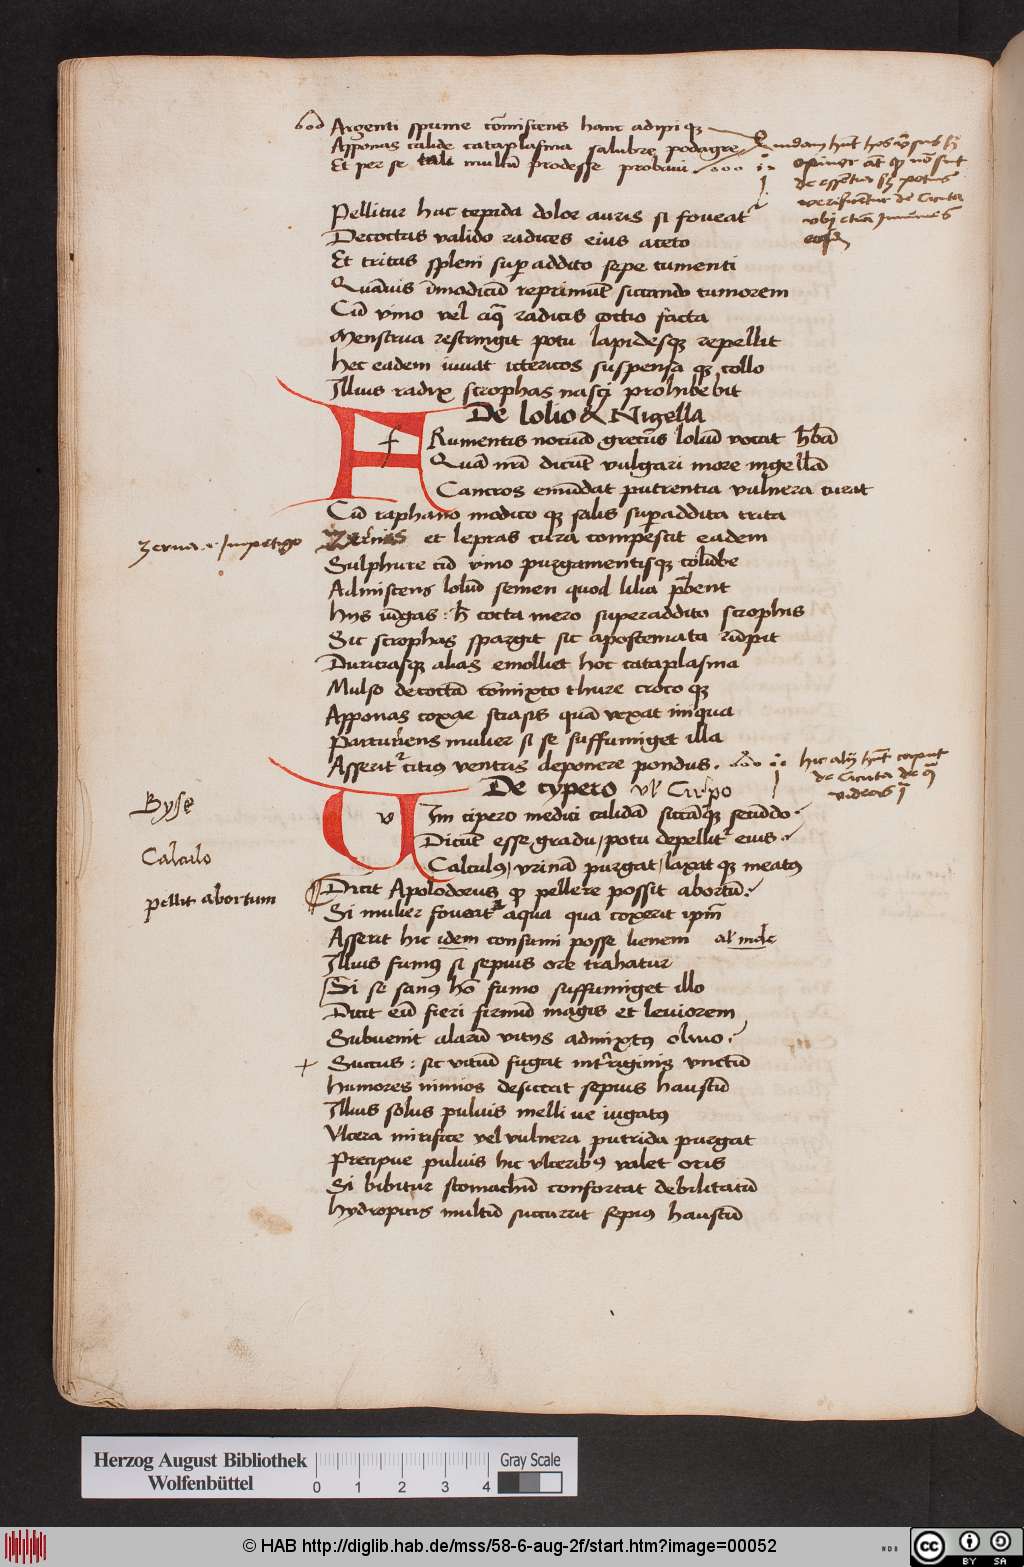 Argenti spume cōmiscens hanc adipi qꝫ
Apponas calide cataplasma salubre podagre
Et per se tali multū prodesse probaui
Pellitur hac tepida dolor auris si foueat᷑
Decoctas valido radices eius aceto
Et tritas spleni sup addito sepe tumenti
Quāuis īmodicū reprimūt siccando tumorem
Cū vino vel aq̄ radicis coctio facta
Menstrua restringit potu lapidesqꝫ repellit
Hec eadem iuuat ictericos suspensa qꝫ collo
Illius radix scrophas nasci prohibebit
De lolio & Nigella
f Rumentis nocuū grecus lolium vocat h̄bā
Quā nr̄i dicūt vulgari more nigellā
Cancros emūdat putrentia vulnera curat
Cū raphano modico qꝫ salis sup addita trita
zerna .i. Impetigo
Zernas et lepras cura compescit eadem
Sulphure cū vino purgamentisqꝫ colūbe
Admiscens loliū semen quod lilia p̄bent
Hijs iūgas : h̄ cocta mero superaddito scrophis
Sic scrophas spargit sic apostemata rūpit
Duriciasqꝫ alias emolliet hoc cataplasma
Mulso decoctā cōmixto thure croco qꝫ
Apponas coxae sciasis quā vexat iniqua
Parturiens mulier si se suffumiget illa
Asserit᷑ citius ventris deponere pondus .
hic alij
de Cicuta
De cypero vl' Cirpo
v Im cipero medici calidam siccāqꝫ secūdo
Dicūt esse gradu / potu depellit᷑ eius
Calculꝰ / vrinā purgat / laxat qꝫ meatꝰ
Calculo
pellit abortum
Dicit Apolodoxus qꝫ pellere possit abortū
Si mulier fouerit᷑ aqua qua coxerit ipm̄
Asserit hic idem consumi posse lienem al' inde
Illius fumꝰ si sepius ore trahatur
Si se sanꝰ hō fumo suffumiget illo
Dicit eū fieri firmū magis et leuiorem
Subuenit alarū vitijs admixtꝰ oliuo
+ Succus : sic vitiū fugat int᷑traginis vnctū
Humores nimios desiccat sepius haustū
Illius solus puluis melli ve iugatꝰ
Vlcera mirifice vel vulnera putrida purgat
Precipue puluis hic vlceribꝰ valet oris
Si bibitur stomachū confortat debilitatū
Hydropicis multū succurrit sepiꝰ haustū
Herzog August Bibliothek
Wolfenbüttel
0 1 2 3 4
Gray Scale
© HAB http://diglib.hab.de/mss/58-6-aug-2f/start.htm?image=00052
cc BY SA